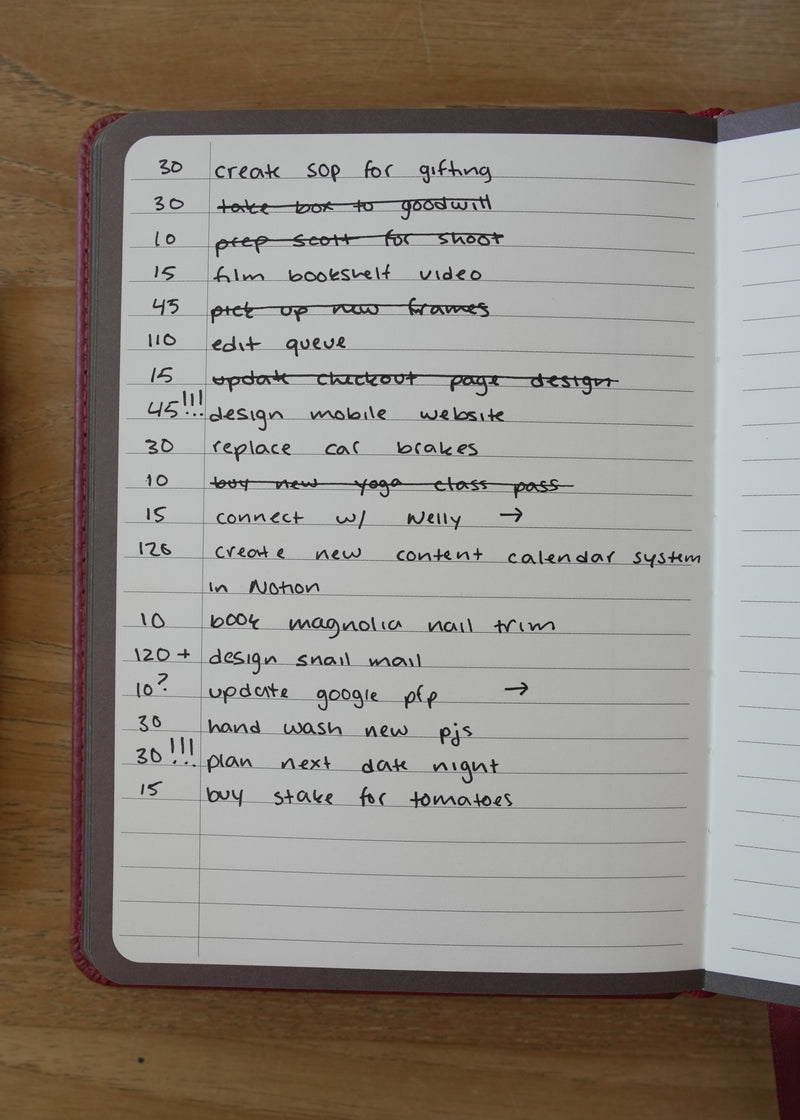 30 create sop for gifting
30 take box to goodwill
10 prep scott for shoot
15 film bookshelf video
45 pick up new frames
110 edit queue
15 update checkout page design
45!!! design mobile website
30 replace car brakes
10 buy new yoga class pass
15 connect w/ Nelly →
120 create new content calendar system
in Notion
10 book magnolia nail trim
120+ design snail mail
10? update google pfp →
30 hand wash new pjs
30!!! plan next date night
15 buy stake for tomatoes